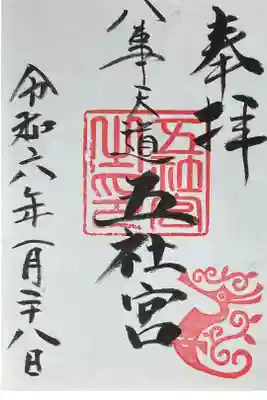 奉拝
八事天道
五社宮
令和六年一月二十八日